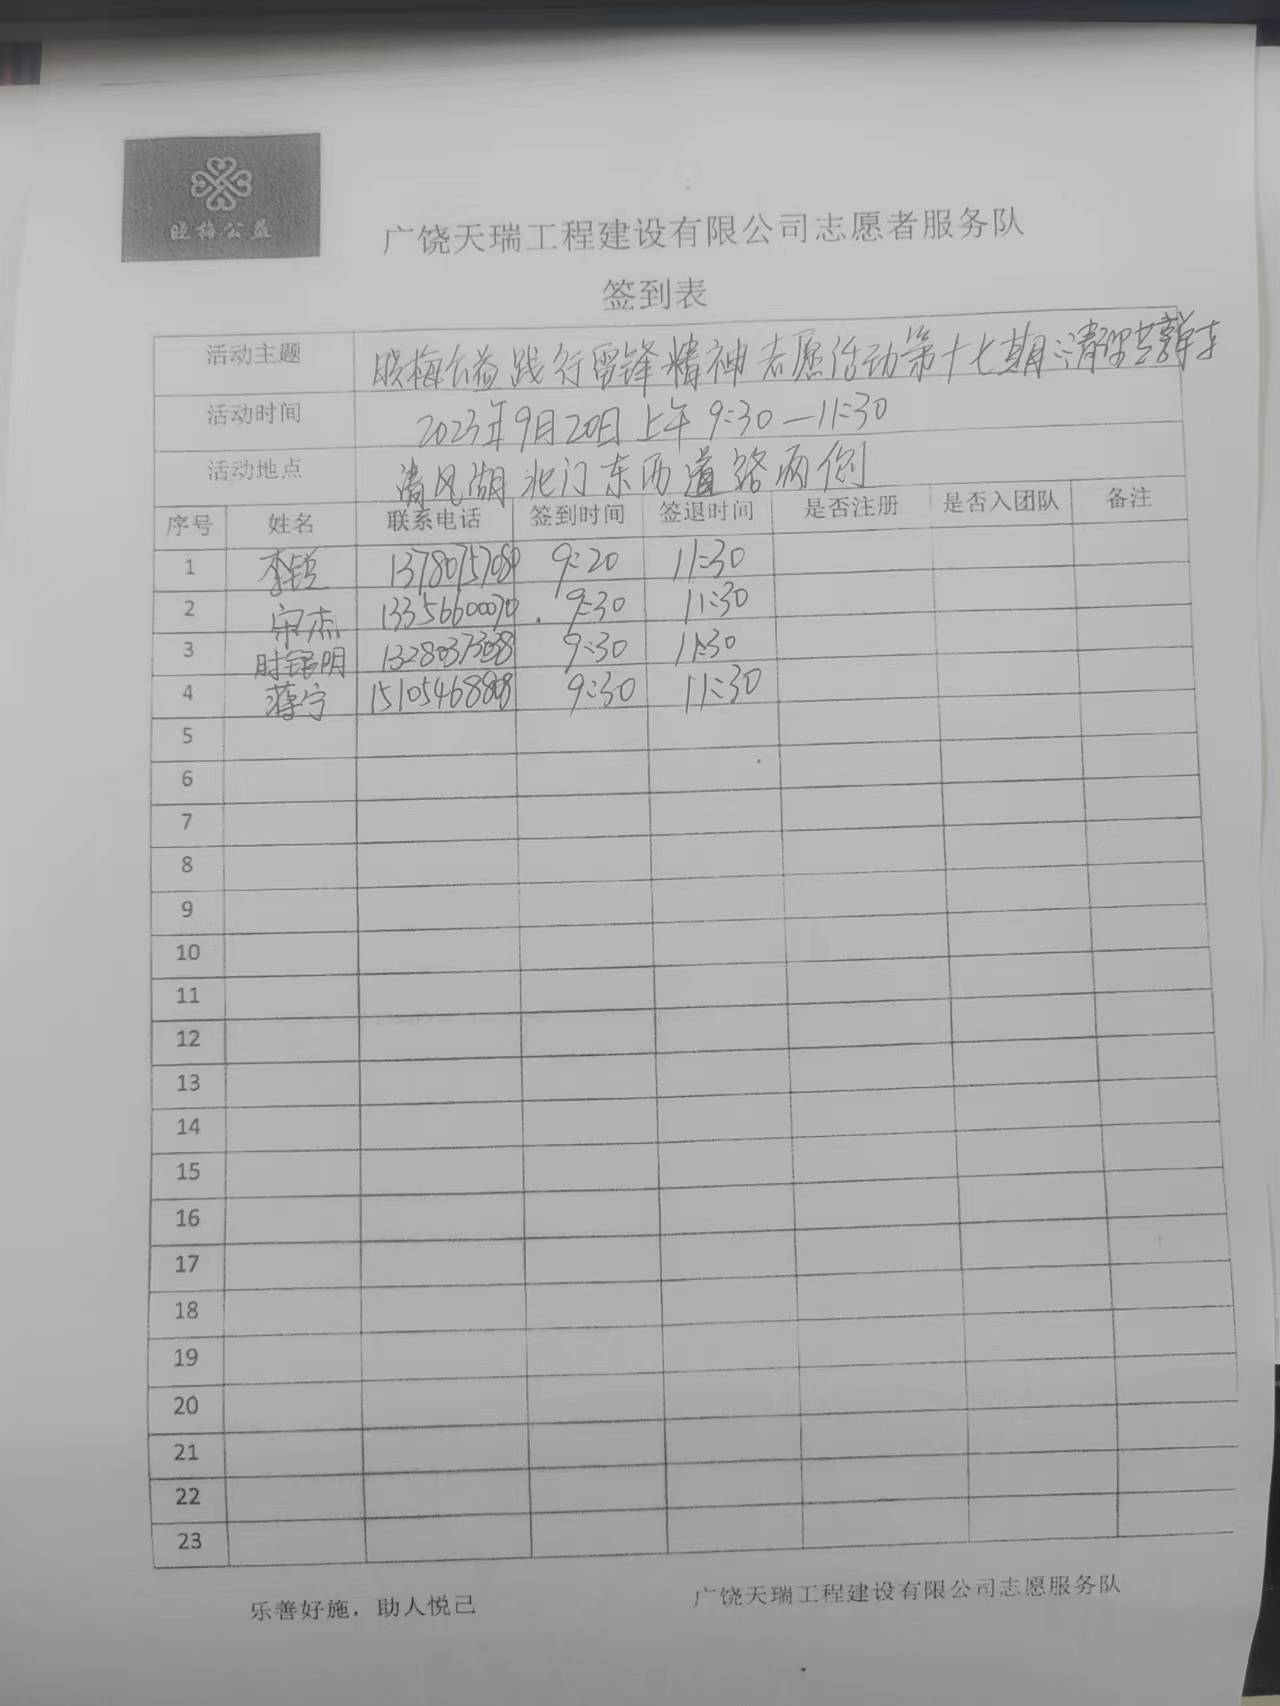 晓梅公益
广饶天瑞工程建设有限公司志愿者服务队
签到表
活动主题 晓梅公益践行雷锋精神志愿活动第十七期:清理共享单车
活动时间 2023年9月20日上午9:30—11:30
活动地点 清风湖北门东西道路两侧
序号 姓名 联系电话 签到时间 签退时间 是否注册 是否入团队 备注
1 李锐 13780757080 9:20 11:30
2 宋杰 13356600070 9:30 11:30
3 时银明 13280373038 9:30 11:30
4 蒋宁 15105468808 9:30 11:30
5
6
7
8
9
10
11
12
13
14
15
16
17
18
19
20
21
22
23
乐善好施，助人悦己 广饶天瑞工程建设有限公司志愿服务队